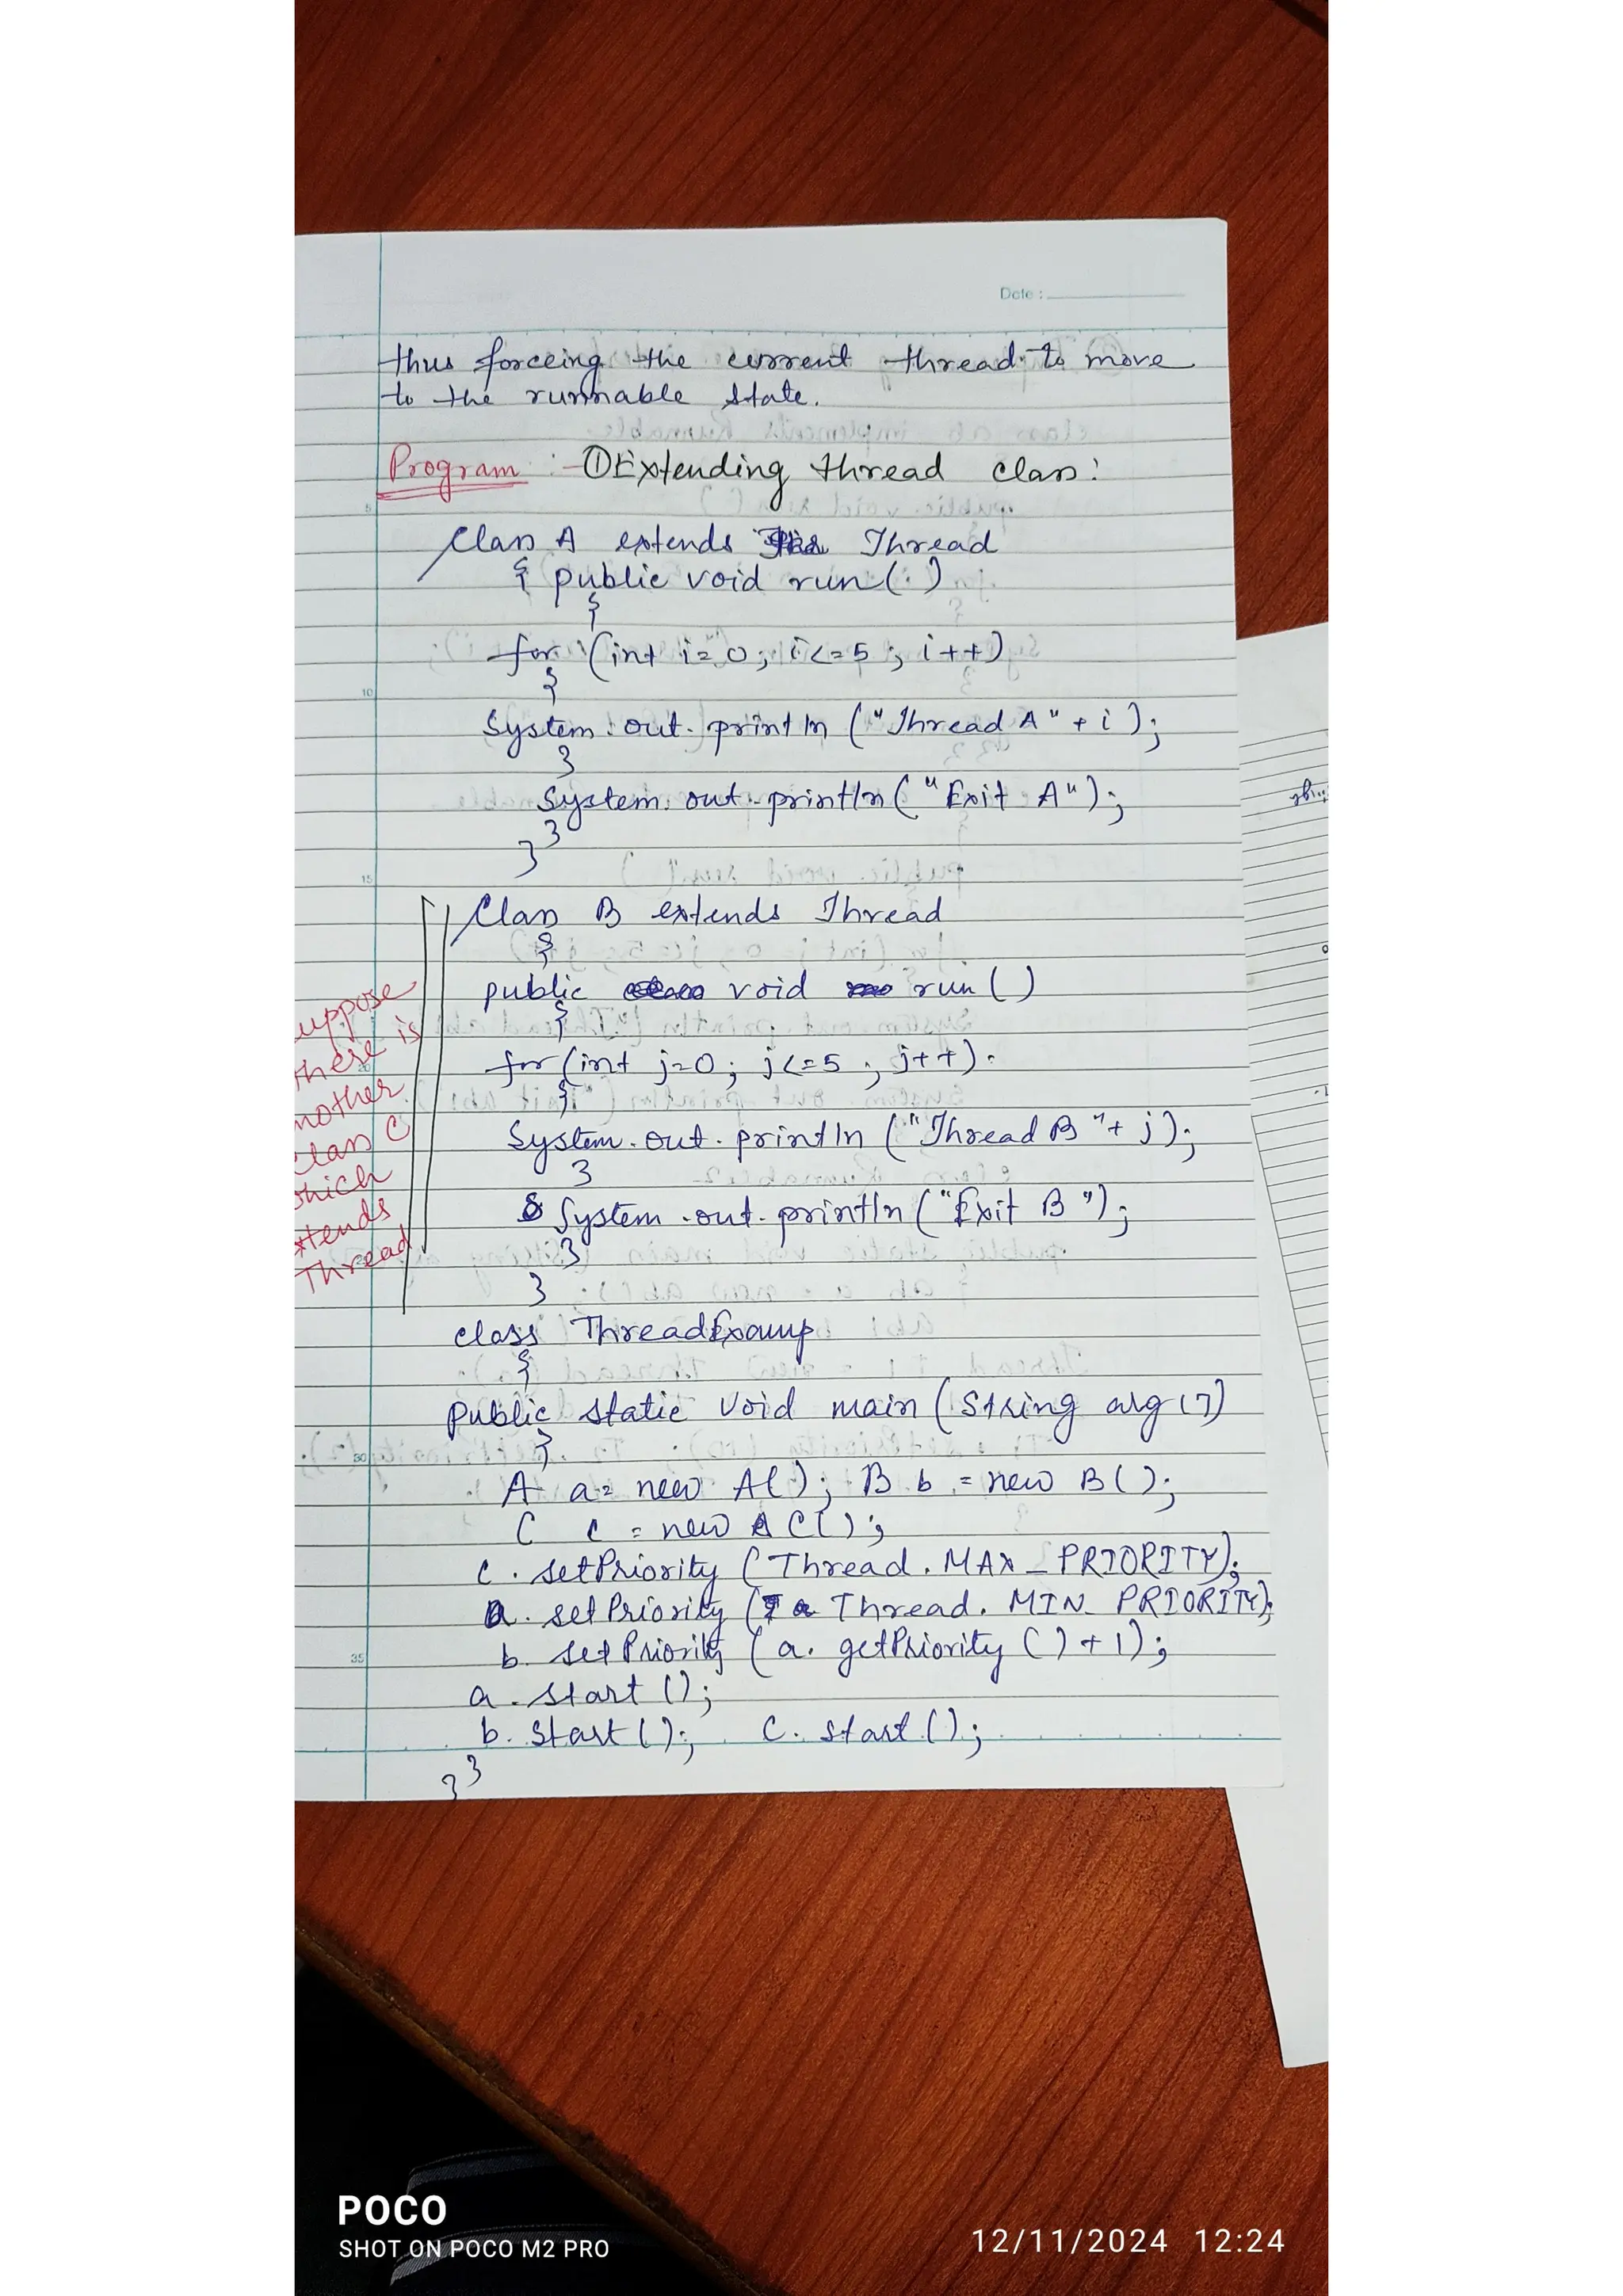 Date :
thus forceing the current thread to move
to the runnable state.
Program :- ① Extending thread class:
Class A extends Thread
{ public void run( )
{
for (int i=0; i<=5; i++)
{
System.out.println ("Thread A" + i );
}
System.out.println ("Exit A");
}
}
Class B extends Thread
{
public void run ( )
{
for (int j=0; j<=5; j++)
{
System.out.println ("Thread B" + j);
}
System.out.println ("Exit B");
}
}
uppose
there is
nother
class C
which
xtends
Thread
class ThreadExamp
{
public static void main (String arg[])
{
A a = new A( ); B b = new B( );
C c = new C( );
c.setPriority (Thread.MAX_PRIORITY);
a.setPriority (Thread.MIN_PRIORITY);
b.setPriority (a.getPriority ( ) + 1);
a.start ( );
b.start ( ); c.start ( );
}
}
5
10
15
30
35
POCO
SHOT ON POCO M2 PRO
12/11/2024 12:24